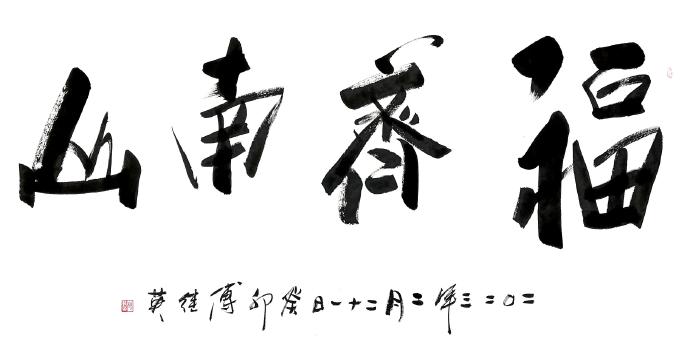 福齊南山
二〇二三年二月二十一日癸卯傅佳英